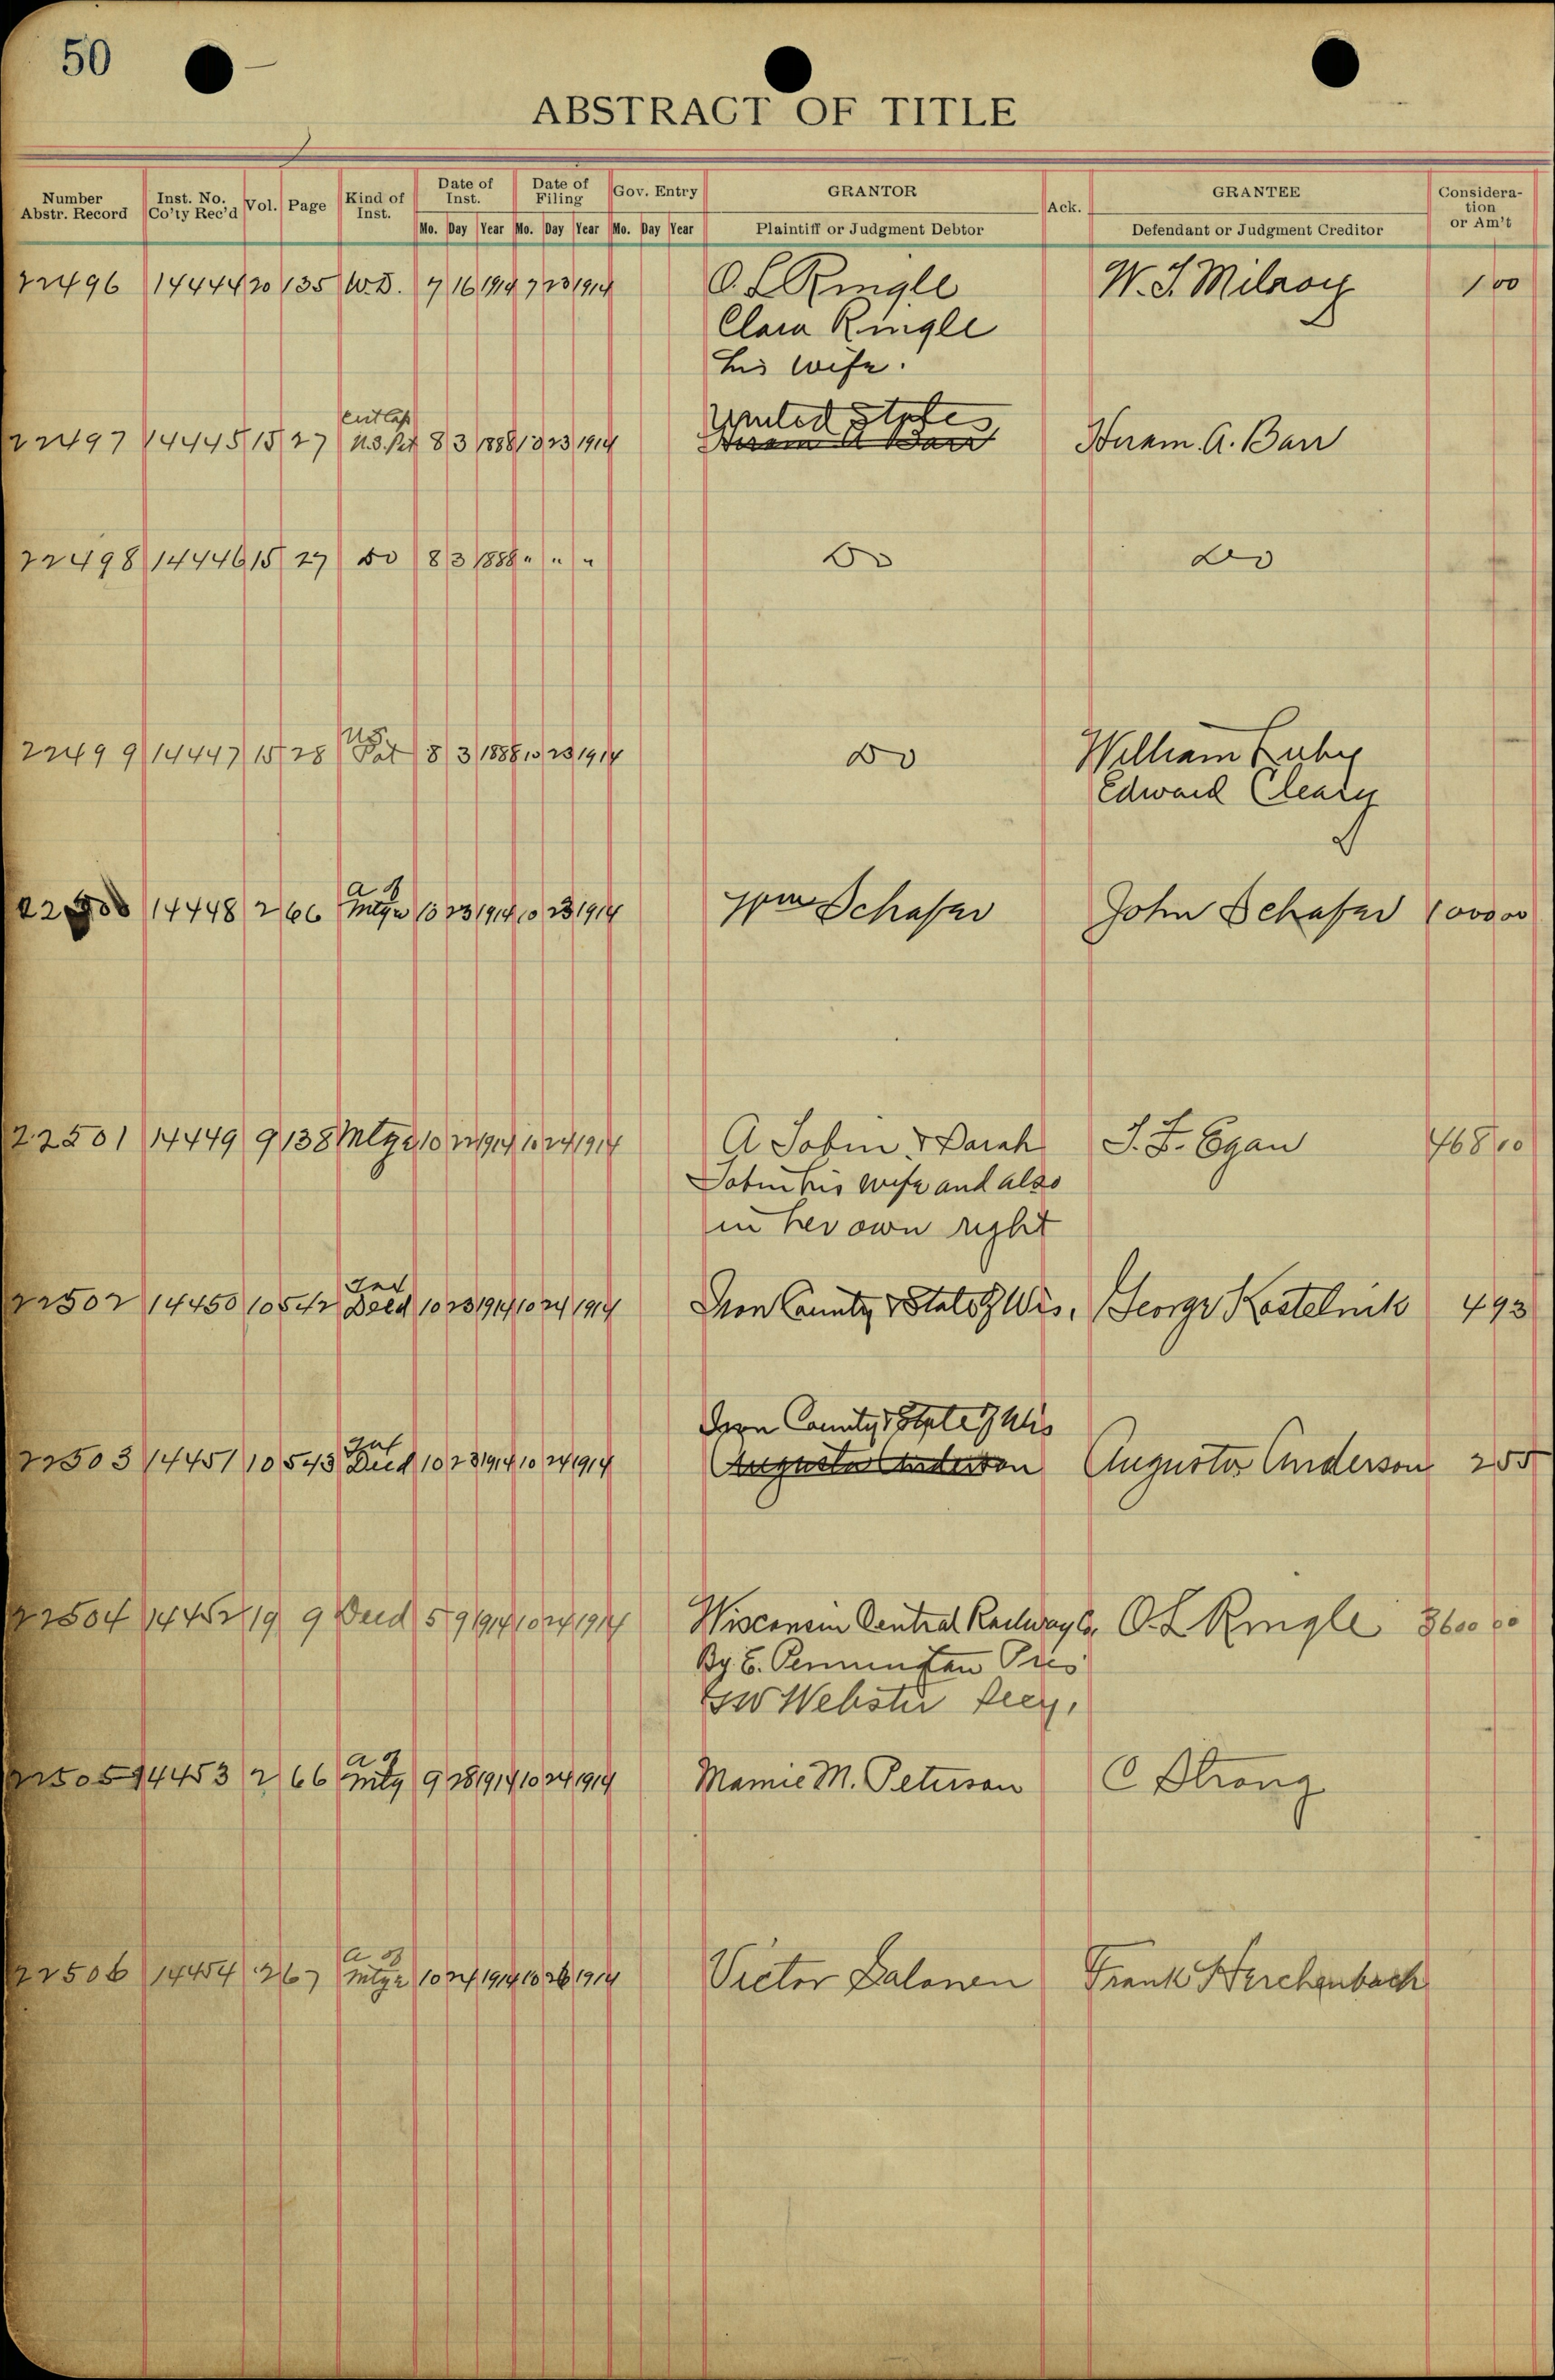 50
ABSTRACT OF TITLE
Number Abstr. Record Inst. No. Co'ty Rec'd Vol. Page Kind of Inst. Date of Inst. Date of Filing Gov. Entry GRANTOR Ack. GRANTEE Consideration or Am't
Mo. Day Year Mo. Day Year Mo. Day Year Plaintiff or Judgment Debtor Defendant or Judgment Creditor
22496 14444 20 135 W.D. 7 16 1914 7 23 1914 O. L Ringle W. S. Milroy 1 00
Clara Ringle
his wife.
United States
22497 14445 15 27 U.S. Pat 8 3 1888 10 23 1914 Hiram A Barr Hiram A. Barr
22498 14446 15 27 Do 8 3 1888 " " " Do Do
22499 14447 15 28 U.S. Pat 8 3 1888 10 23 1914 Do William Luby
Edward Cleary
22500 14448 2 66 a of Mtge 10 23 1914 10 23 1914 Wm Schafer John Schafer 1000 00
22501 14449 9 138 Mtge 10 22 1914 10 24 1914 A Tobin & Sarah S. F. Egan 468 00
Tobin his wife and also
in her own right
22502 14450 10 542 Tax Deed 10 23 1914 10 24 1914 Iron County & State of Wis. George Kostelnik 493
Iron County & State of Wis
22503 14451 10 543 Tax Deed 10 23 1914 10 24 1914 Augusta Anderson Augusta Anderson 255
22504 14452 19 9 Deed 5 9 1914 10 24 1914 Wisconsin Central Railway Co. O. L Ringle 3600 00
By E. Pennington Pres
GW Webster Secy.
22505 14453 2 66 a of Mtg 9 28 1914 10 24 1914 Mamie M. Peterson C Strong
22506 14454 2 67 a of Mtge 10 24 1914 10 26 1914 Victor Salonen Frank Herchenbach